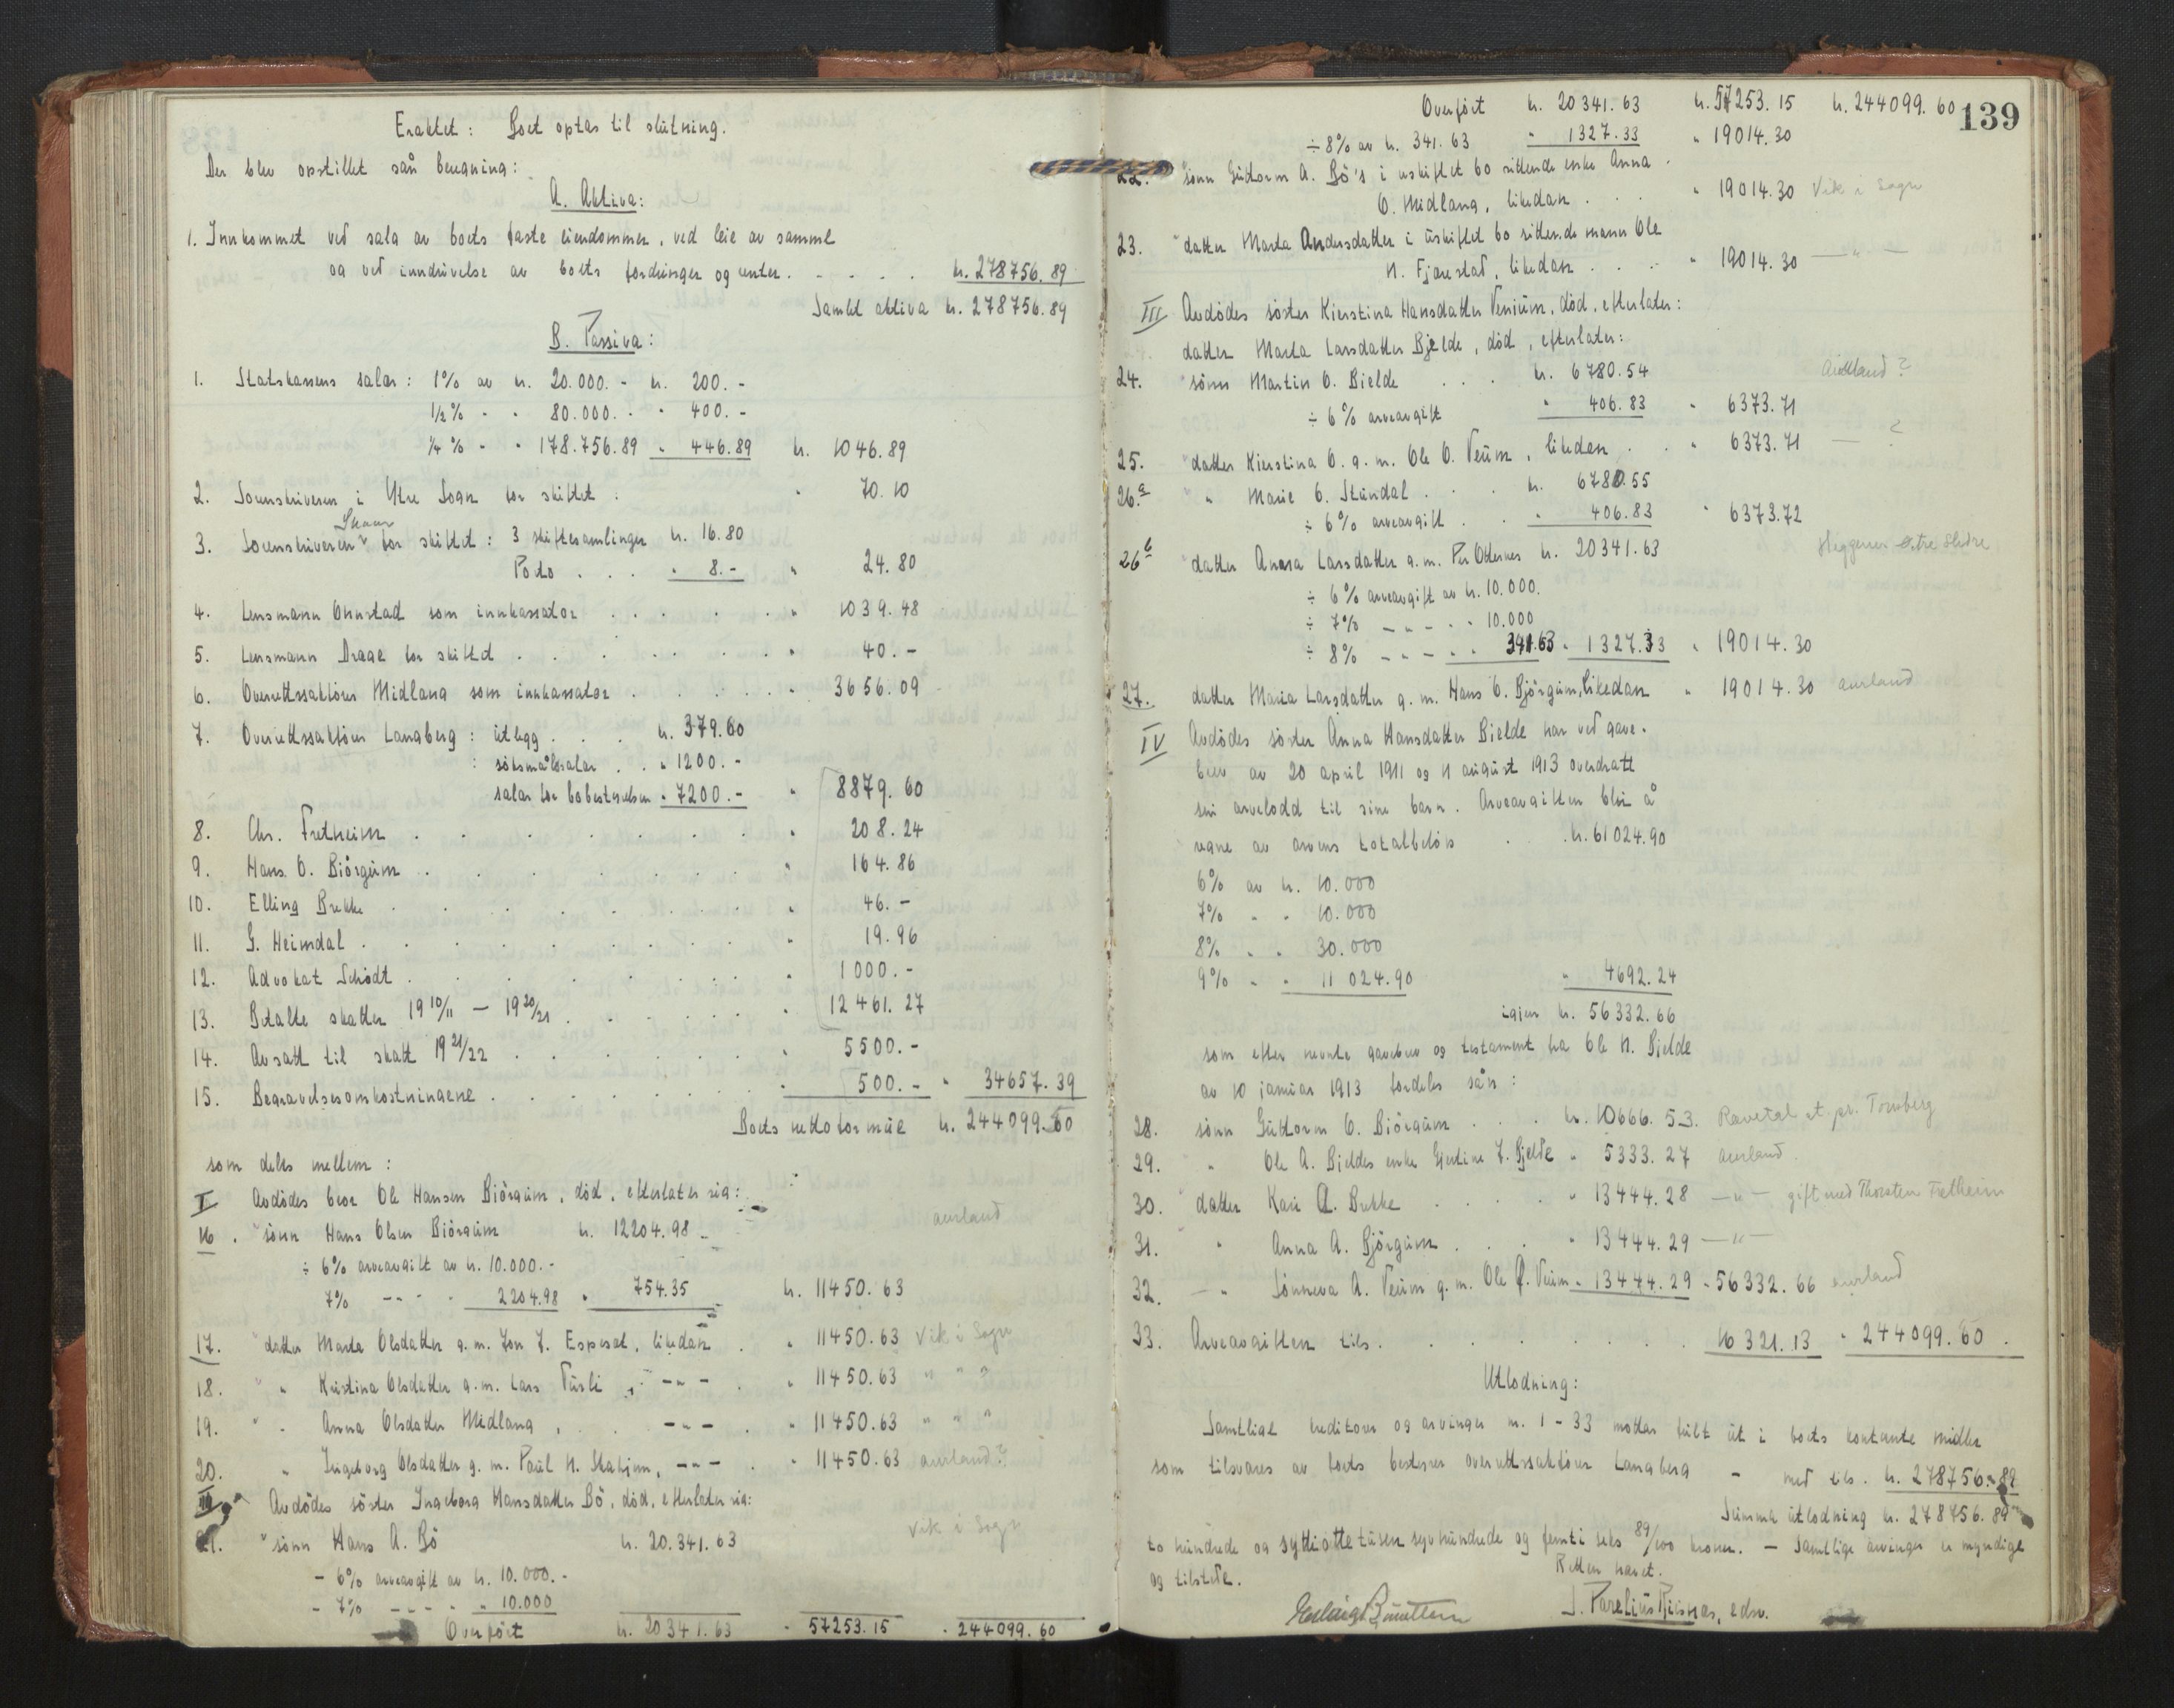 Eraktet: Boet optas til slutning.
Der blev opstillet sån beregning:
A. Aktiva:
1. Innkommet ved salg av boets faste eiendommer, ved leie av samme
og ved inndrivelse av boets fordringer og renter. . . . . kr. 278756.89
Samlet aktiva kr. 278756.89
B. Passiva:
1. Statskassens salær: 1% av kr. 20.000.- kr. 200.-
1/2% - - 80.000. - - 400.-
1/4% - - 178.756.89 - 446.89 kr. 1046.89
2. Sorenskriveren i Ytre Sogn for skiftet: " 70.10
3. Sorenskriveren for skiftet: 3 skiftesamlinger kr. 16.80
Porto . . . " 8.- " 24.80
4. Lensmann Onnstad som innkassator . . . . . " 1039.48
5. Lensmann Drage for skiftet . . . . . . " 40.-
6. Overrettssakfører Midlang som innkassator . . . . . " 3656.09
7. Overrettssakfører Langberg: utlegg . . . kr. 379.60
: søksmålssalær . . " 1200.-
salær for bobestyrelsen " 7200.- " 8879.60
8. Chr. Fretheim . . . . . . . . " 208.24
9. Hans O. Biørgum . . . . . . . " 164.86
10. Elling Brekke . . . . . . . . " 46.-
11. G. Heimdal . . . . . . . . " 19.96
12. Advokat Schødt . . . . . . . " 1000.-
13. Betalte skatter 19 10/11 — 19 20/21 . . . . . . " 12461.27
14. Avsatt til skatt 19 21/22 . . . . . . . " 5500.-
15. Begravelsesomkostningene . . . . . . . " 500.- " 34657.39
Boets nettoformue kr. 244099.50
som deles mellem:
I Avdødes bror Ole Hansen Biørgum, død, efterlater sig:
16. sønn Hans Olsen Biørgum kr. 12204.98 aurland
÷ 6% arveavgift av kr. 10.000.-
7% - - - - 2204.98 " 754.35 kr. 11450.63
17. datter Marta Olsdatter g.m. Jon J. Espeset, likedan . " 11450.63 Vik i Sogn
18. " Kristina Olsdatter g.m. Lars Turli, - " - . " 11450.63 " " ?
19. " Anna Olsdatter Midlang, . . - " - . " 11450.63 " " "
20. " Ingeborg Olsdatter g.m. Paul H. Stahjem, - " - . " 11450.63 aurland?
II Avdødes søster Ingeborg Hansdatter Bø, død, efterlater sig:
21. sønn Hans A. Bø kr. 20.341.63 Vik i Sogn
- 6% arveavgift av kr. 10.000.-
- 7% - - - - " 10.000
Overført kr. 20341.63 " 57253.15 " 244099.60
139
Overført kr. 20341.63 kr. 57253.15 kr. 244099.60
÷ 8% av kr. 341.63 " 1327.33 " 19014.30
22. sønn Guttorm A. Bø's i uskiftet bo sittende enke Anna
O. Midlang, likedan . . . " 19014.30 Vik i Sogn
23. datter Marta Andersdatter i uskiftet bo sittende mann Ole
N. Fjærestad, likedan . . . " 19014.30 — " —
III Avdødes søster Kierstina Hansdatter Venium, død, efterlater:
datter Marta Larsdatter Bjelde, død, efterlater:
24. sønn Martin O. Bielde . . . kr. 6780.54 Aurland?
÷ 6% arveavgift " 406.83 " 6373.71
25. datter Kierstina O. g.m. Ole O. Veium, likedan . . " 6373.71 — ?
26a " Marie O. Stundal . . . kr. 6780.55
÷ 6% arveavgift . . " 406.83 " 6373.72
26b datter Anna Larsdatter g.m. Per Otternes kr. 20341.63 Heggenes Østre Slidre
÷ 6% arveavgift av kr. 10.000.
÷ 7% - - - - 10.000
÷ 8% - - - - 341.63 " 1327.33 " 19014.30
27. datter Maria Larsdatter g.m. Hans O. Bjørgum, likedan " 19014.30 aurland
IV Avdødes søster Anna Hansdatter Bielde har ved gave-
brev av 20 april 1911 og 11 august 1913 overdratt
sin arvelodd til sine barn. Arveavgiften blir å
regne av arvens totalbeløp . . kr. 61024.90
6% av kr. 10.000
7% " " 10.000
8% " " 30.000
9% " " 11 024.90 " 4692.24
igjen kr. 56332.66
som efter nevnte gavebrev og testament fra Ole H. Bielde
av 10 januar 1913 fordeles sån:
28. sønn Guttorm O. Biørgum . . . kr. 10666.53. Ravetal st. pr. Tønsberg
29. " Ole A. Bieldes enke Gjertine J. Bjelde " 5333.27 Aurland.
30. datter Kari A. Brekke . . . . " 13444.28 — " — gift med Thorsten Fretheim
31. " Anna A. Bjørgum . . . " 13444.29 — " —
32. " Sønneva A. Veium g.m. Ole O. Veium " 13444.29 " 56332.66 aurland
33. Arveavgiften tils. . . . . . . . 16321.13 " 244099.60.
Utlodning:
Samtlige kreditorer og arvinger nr. 1 - 33 mottar fullt ut i boets kontante midler
som tilsvares av boets bestyrer overrettssakfører Langberg - med tils. kr. 278756.89
Summa utlodning kr. 278756.89
to hundrede og sytti otte tusen syvhundrede og femti seks 89/100 kroner. - Samtlige arvinger er myndige
og tilstede.
Retten hævet.